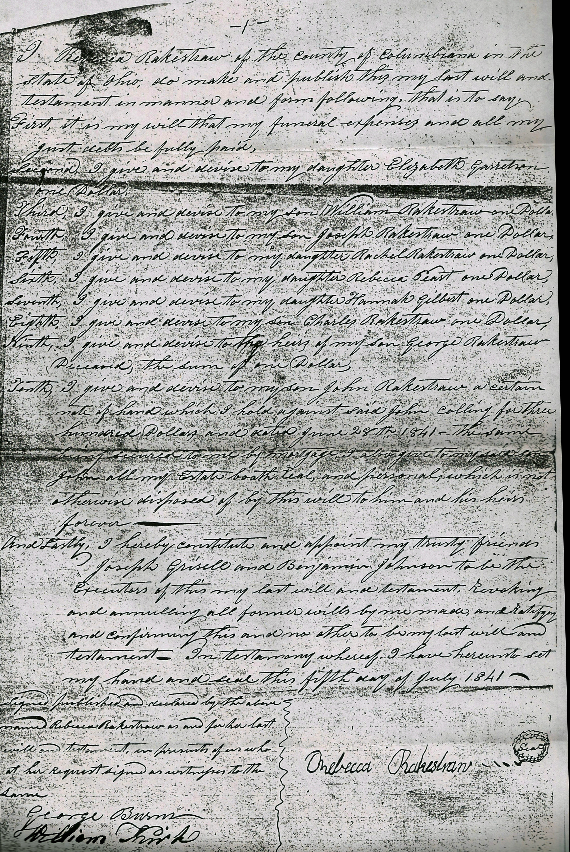 -1-
I Rebecca Rakestraw of the county of Columbiana in the
state of Ohio, do make and publish this my last will and
testament in manner and form following, that is to say,
First, it is my will that my funeral expenses and all my
just debts be fully paid,
Second, I give and devise to my daughter Elizabeth Garretson
one Dollar,
Third, I give and devise to my son William Rakestraw one Dollar
Fourth, I give and devise to my son Joseph Rakestraw one Dollar,
Fifth, I give and devise to my daughter Rachel Rakestraw one Dollar,
Sixth, I give and devise to my daughter Rebecca one Dollar,
Seventh, I give and devise to my daughter Hannah Gilbert one Dollar,
Eighth, I give and devise to my son Charles Rakestraw one Dollar,
Ninth, I give and devise to the heirs of my son George Rakestraw
Deceased, the sum of one Dollar,
Tenth, I give and devise to my son John Rakestraw, a certain
note of hand which I hold against said John calling for three
hundred Dollars and dated June 28th 1841 - the same
secured to me by mortgage, also give to my said son
John all my Estate booth real, and personal, which is not
otherwise disposed of by this will to him and his heirs
forever
And Lastly, I hereby constitute and appoint my trusty friends
Joseph Grisell and Benjamin Johnson to be the
Executors of this my last will and testament, Revoking
and annulling all former wills by me made, and Ratifying
and confirming this and no other to be my last will and
testament - In testamony whereof, I have hereunto set
my hand and seal this fifth day of July 1841
Signed published and declared by the above
named Rebecca Rakestraw as and for her last
will and testament, in presents of us who
at her request signed as witnesses to the
same
Rebecca Rakestraw
George Burns
William